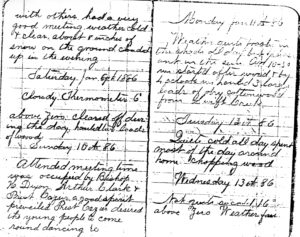 with others. had a very
good meeting weather cold
& clear. about 4 inches of
snow on the ground clouded
up in the evening
Saturday, Jan 9th 1886
Cloudy Thermometer 6°
above Zero cleared off dur-
ing the day, hauled 2 loads
of woods
Sunday 10th 86
Attended meeting time
was occupied by Bishop
H. Dixon Arthur Clark &
Prest Gazer a good spirit
prevailed Prest desired
the young people to come
round dancing to
Monday Jan 11th 86
Much
the whole day
out in the sun 10-30
we started after wood & by
5 o'clock hauled 3 loads
loads of dry cottonwood
from Creek
Tuesday 12th 86
Quite cold all day spent
most of the day around
home. Chopping wood
Wednesday 13th 86.
Not quite so cold 16°
above Zero Weather fair